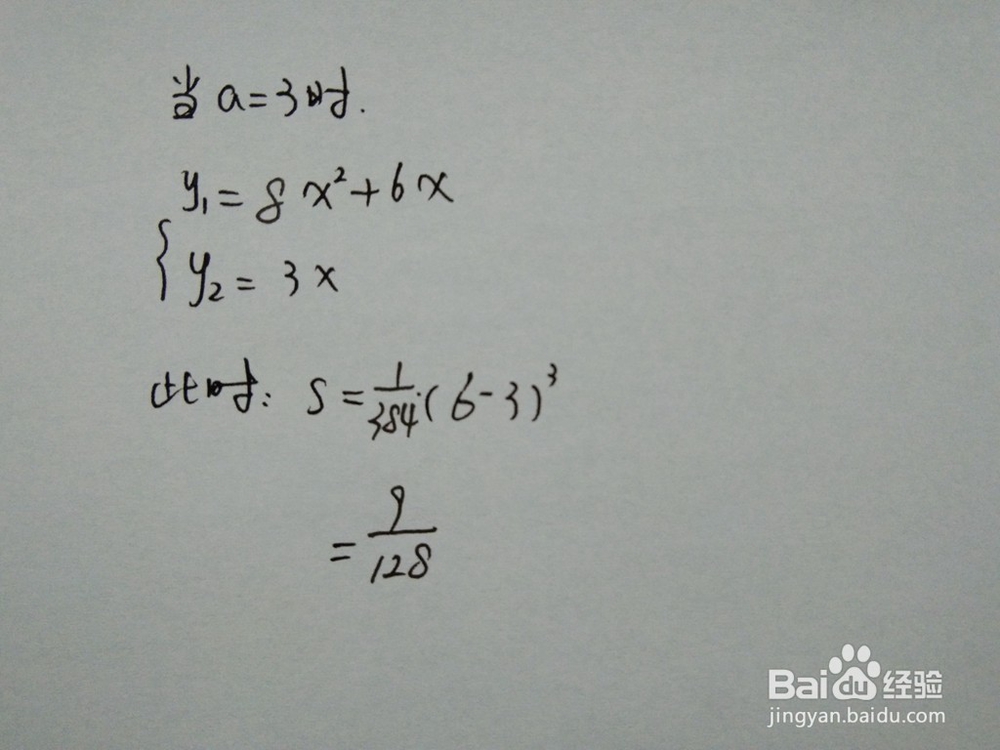 当 a=3时.
y₁=8x²+6x
{ y₂=3x
此时: S=1/384(6-3)³
=9/128
Baidu经验
jingyan.baidu.com